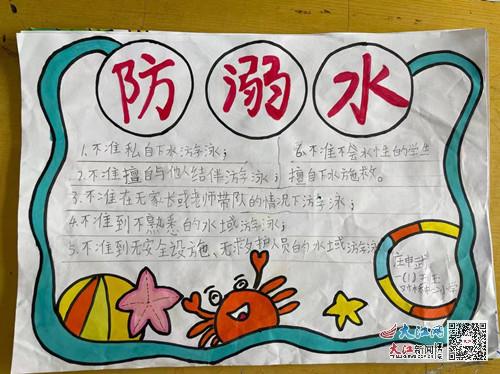 防溺水
1.不准私自下水游泳；
2.不准擅自与他人结伴游泳；
3.不准在无家长或老师带队的情况下游泳；
4.不准到不熟悉的水域游泳；
5.不准到无安全设施、无救护人员的水域游泳
6.不准不会水性的学生
擅自下水施救。
一(1)班
大江网
大江新闻